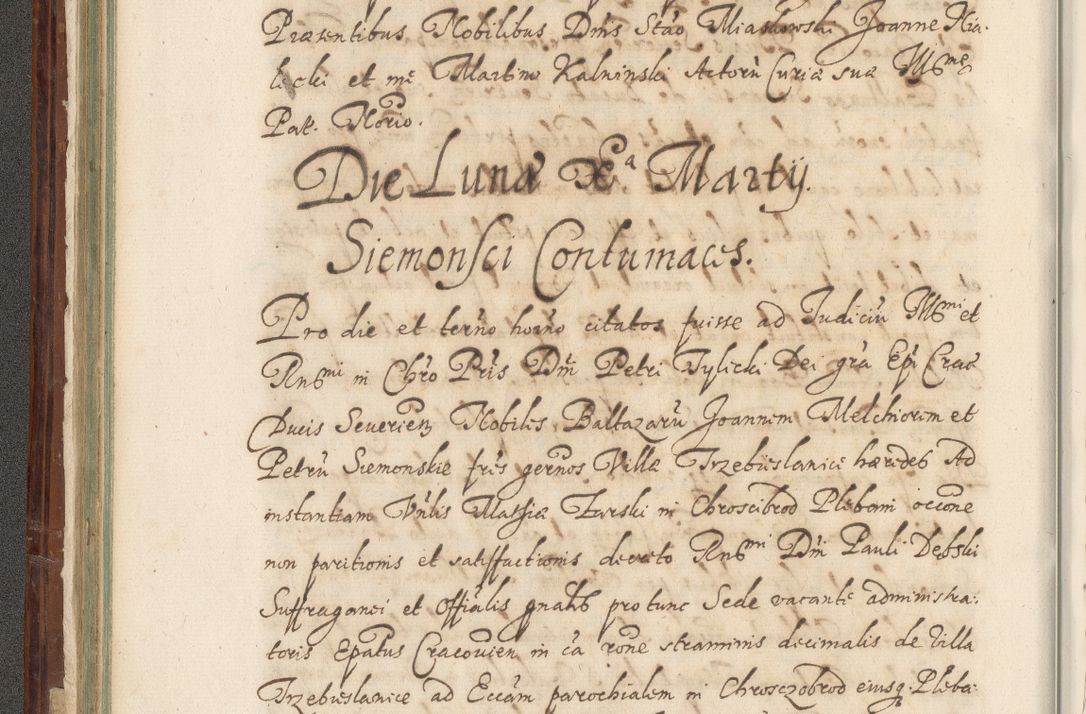 Præsentibus Nobilibus Dnis Stão Miaskowski Joanne Nia-
lecki et me Martino Kalninski Actorũ Curiæ suæ Illmæ
Pat. Norio.
Die Lunæ Xa Martij.
Siemonsci Contumaces.
Pro die et termo horno citatos fuisse ad Judiciũ Illmi et
Rndmi in Chro Pris Dni Petri Tylicki Dei gra Epi Crac
Ducis Severien Nobiles Baltazarũ Joannem Melchiorem et
Petrũ Siemonskie fres germos Villæ Trzebieslanice hæredes Ad
instantiam Vnlis Mathiæ Zarski in Chroscibrod Plebani occõne
non paritionis et satisfactionis decreto Rndmi Dni Pauli Dębski
Suffraganei et Offialis gnalis pro tunc Sede vacante administra-
toris Epatus Cracovien in ca rone straminis decimalis de Villa
Trzebieslanice ad Eccam parochialem in Chrosczobrod eiusq. Pleba-